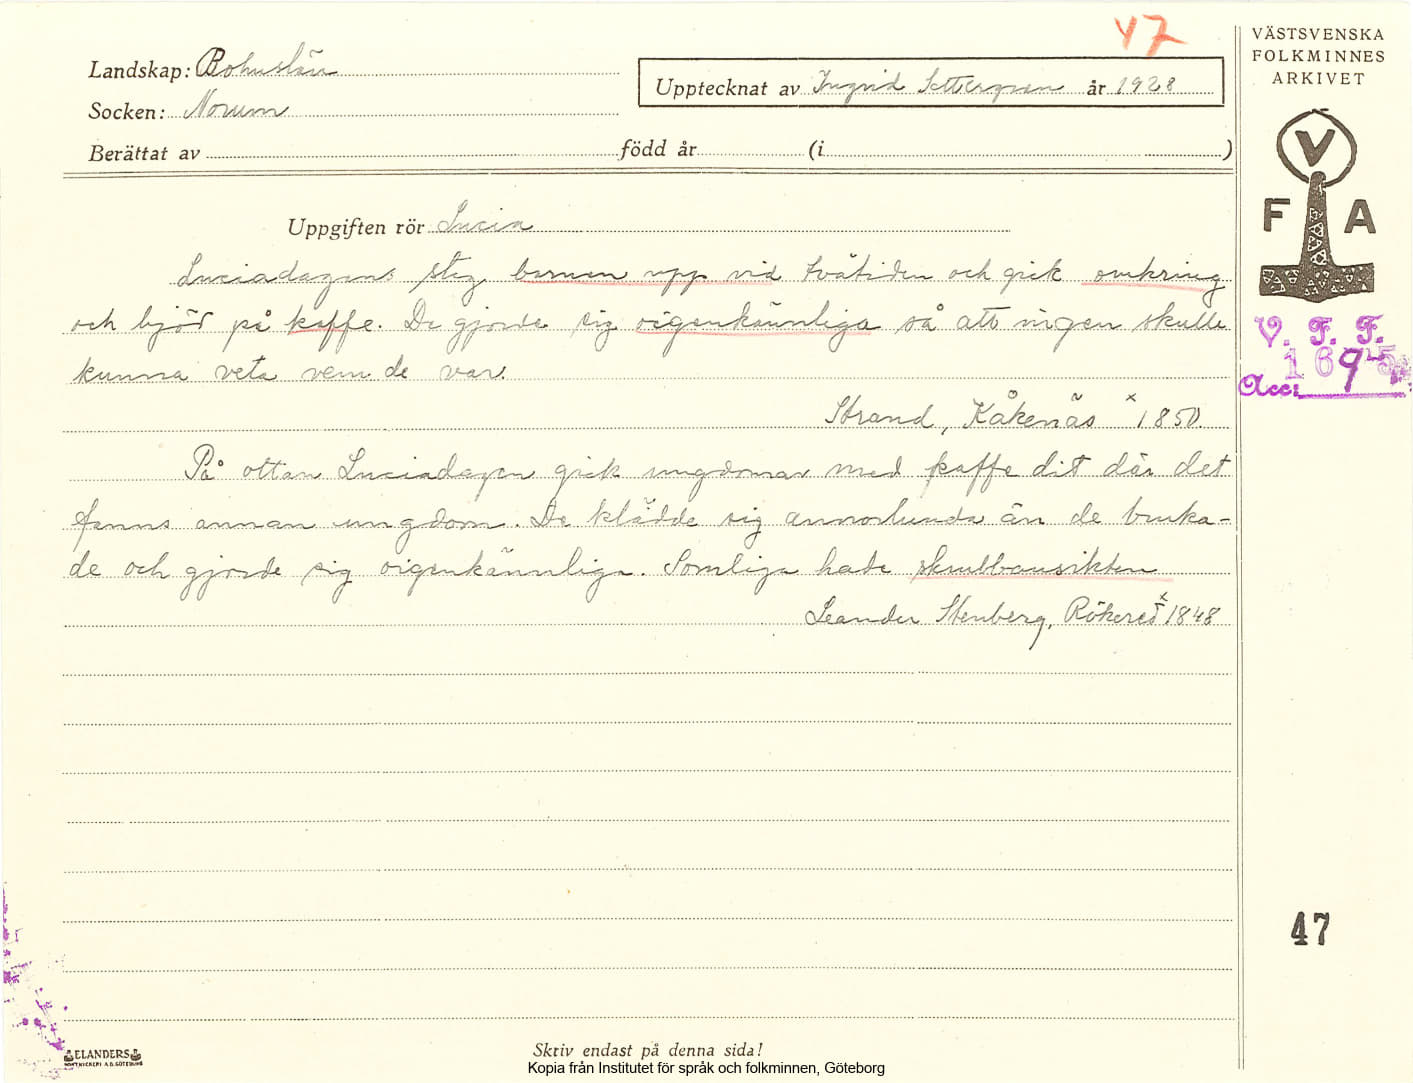 47
VÄSTSVENSKA
FOLKMINNES
ARKIVET
Landskap: Bohuslän
Upptecknat av Ingrid Settergren år 1928
Socken: Norum
Berättat av född år (i )
V
F A
Uppgiften rör Lucia
Luciadagens steg barnen upp vid tvåtiden och gick omkring
och bjöd på kaffe. De gjorde sig oigenkännliga så att ingen skulle
kunna veta vem de var.
V. F. F.
Acc: 1695
Strand, Kåkenäs x 1850.
På ottan Luciadagen gick ungdomar med kaffe dit där det
fanns annan ungdom. De klädde sig annorlunda än de bruka-
de och gjorde sig oigenkännliga. Somliga hade skrubbansikten
Leander Stenberg, Rökered x 1848
47
ELANDERS
Skriv endast på denna sida!
Kopia från Institutet för språk och folkminnen, Göteborg